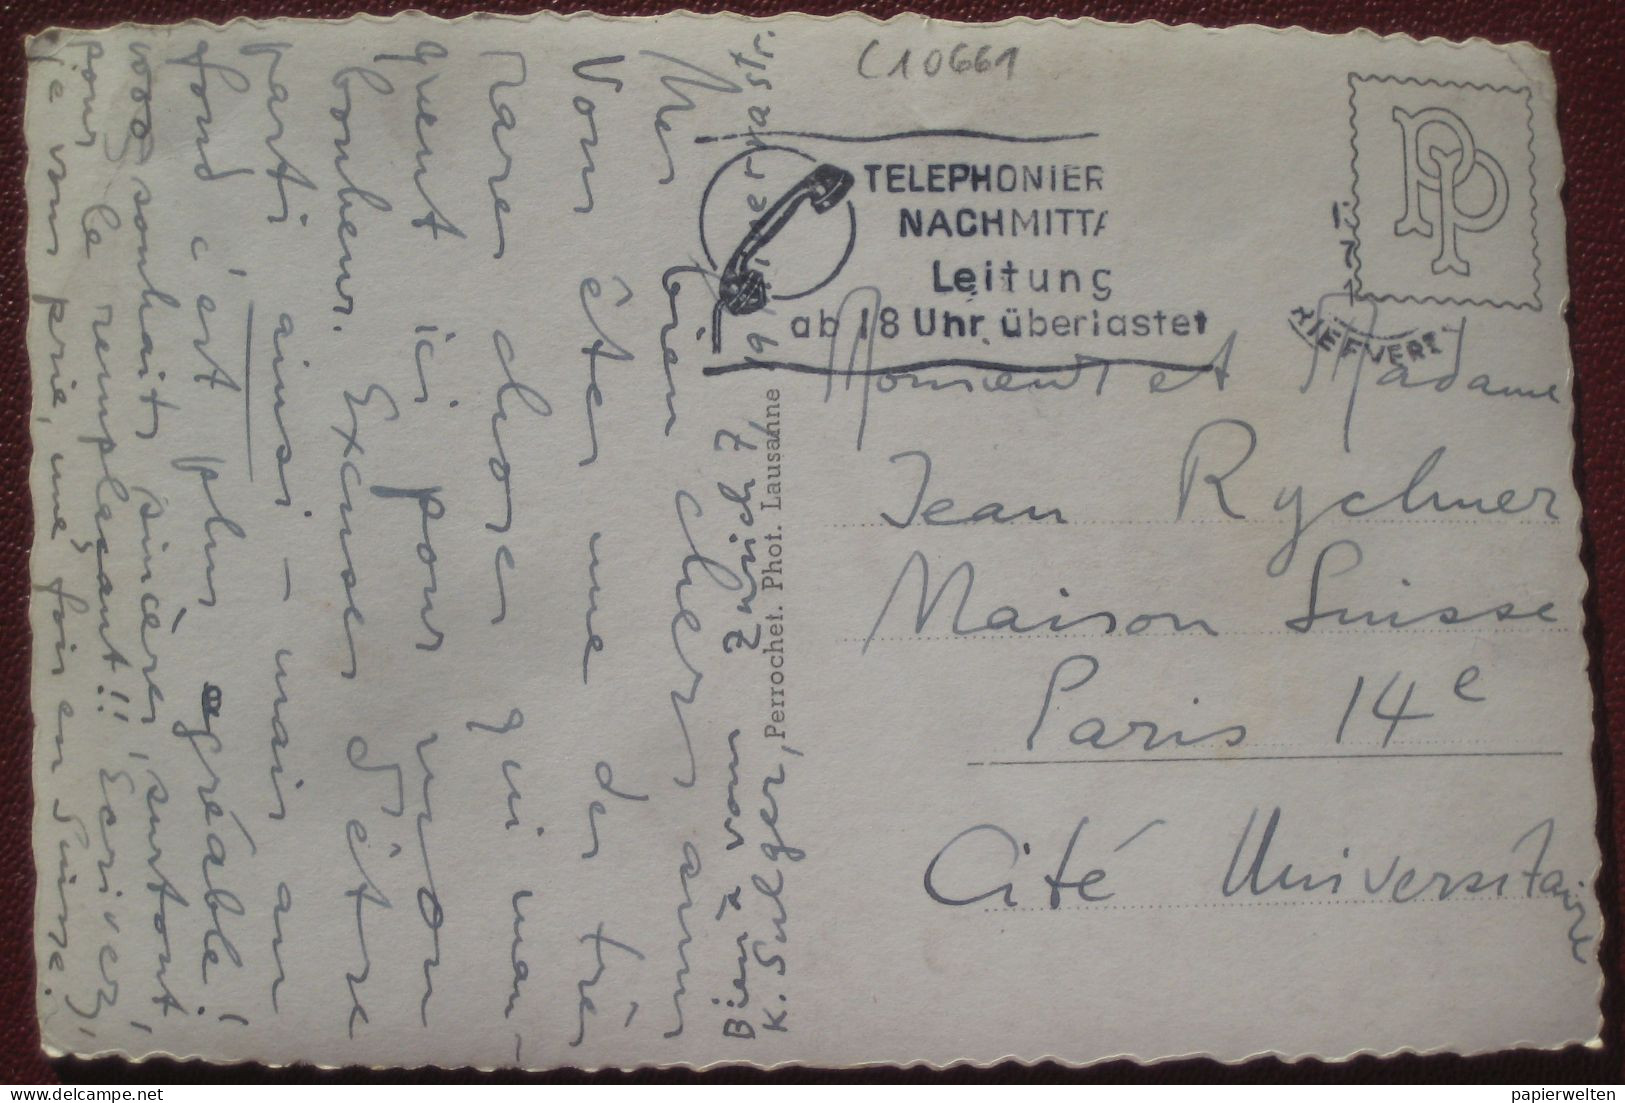 C10661
TELEPHONIER
NACHMITTA
Leitung
ab 18 Uhr überlastet
PP
RIEFVER
Monsieur et Madame
Jean Rychner
Maison Suisse
Paris 14e
Cité Universitaire
Perrochet. Phot. Lausanne
Mes bien chers amis
Vous êtes une des très
rares choses qui man-
quent ici pour mon
bonheur. Excuses d'être
parti ainsi – mais au
fond c'est plus agréable!
vos souhaits sincères, surtout,
pour le remplaçant!! Ecrivez,
je vous prie, une fois en Suisse.
Bien à vous
K. Sulger, Zürich 7,
papierwelten